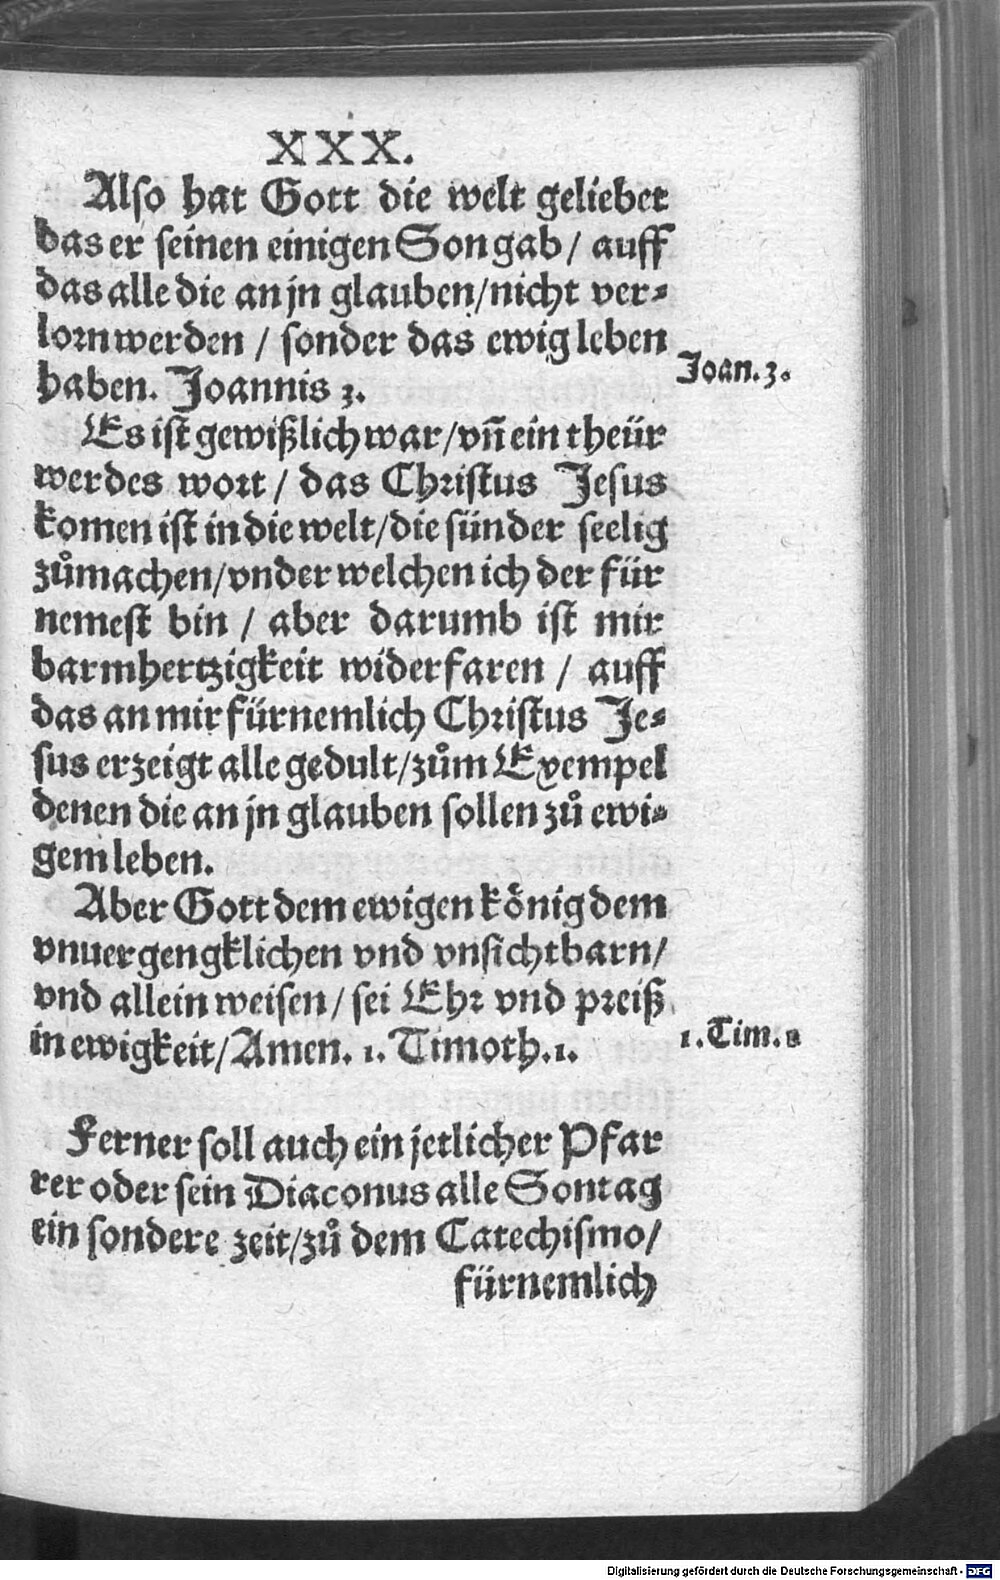 XXX.
Also hat Gott die welt geliebet
das er seinen einigen Son gab / auff
das alle die an jn glauben/nicht ver⸗
lorn werden / sonder das ewig leben
haben. Joannis 3.
Joan.3.
Es ist gewißlich war/vn̄ ein theür
werdes wort / das Christus Jesus
komen ist in die welt/die sünder seelig
zůmachen/vnder welchen ich der für
nemest bin / aber darumb ist mir
barmhertzigkeit widerfaren / auff
das an mir fürnemlich Christus Je⸗
sus erzeigt alle gedult/zům Exempel
denen die an jn glauben sollen zů ewi⸗
gem leben.
Aber Gott dem ewigen kőnig dem
vnuergengklichen vnd vnsichtbarn/
vnd allein weisen/ sei Ehr vnd preiß
in ewigkeit/Amen. 1. Timoth.1.
1.Tim.1
Ferner soll auch ein jetlicher Pfar
rer oder sein Diaconus alle Sontag
ein sondere zeit/zů dem Catechismo/
fürnemlich
Digitalisierung gefördert durch die Deutsche Forschungsgemeinschaft - DFG